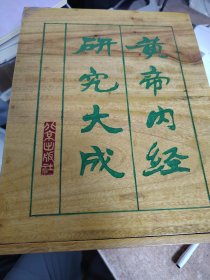 黄帝内经
研究大成
北京出版社